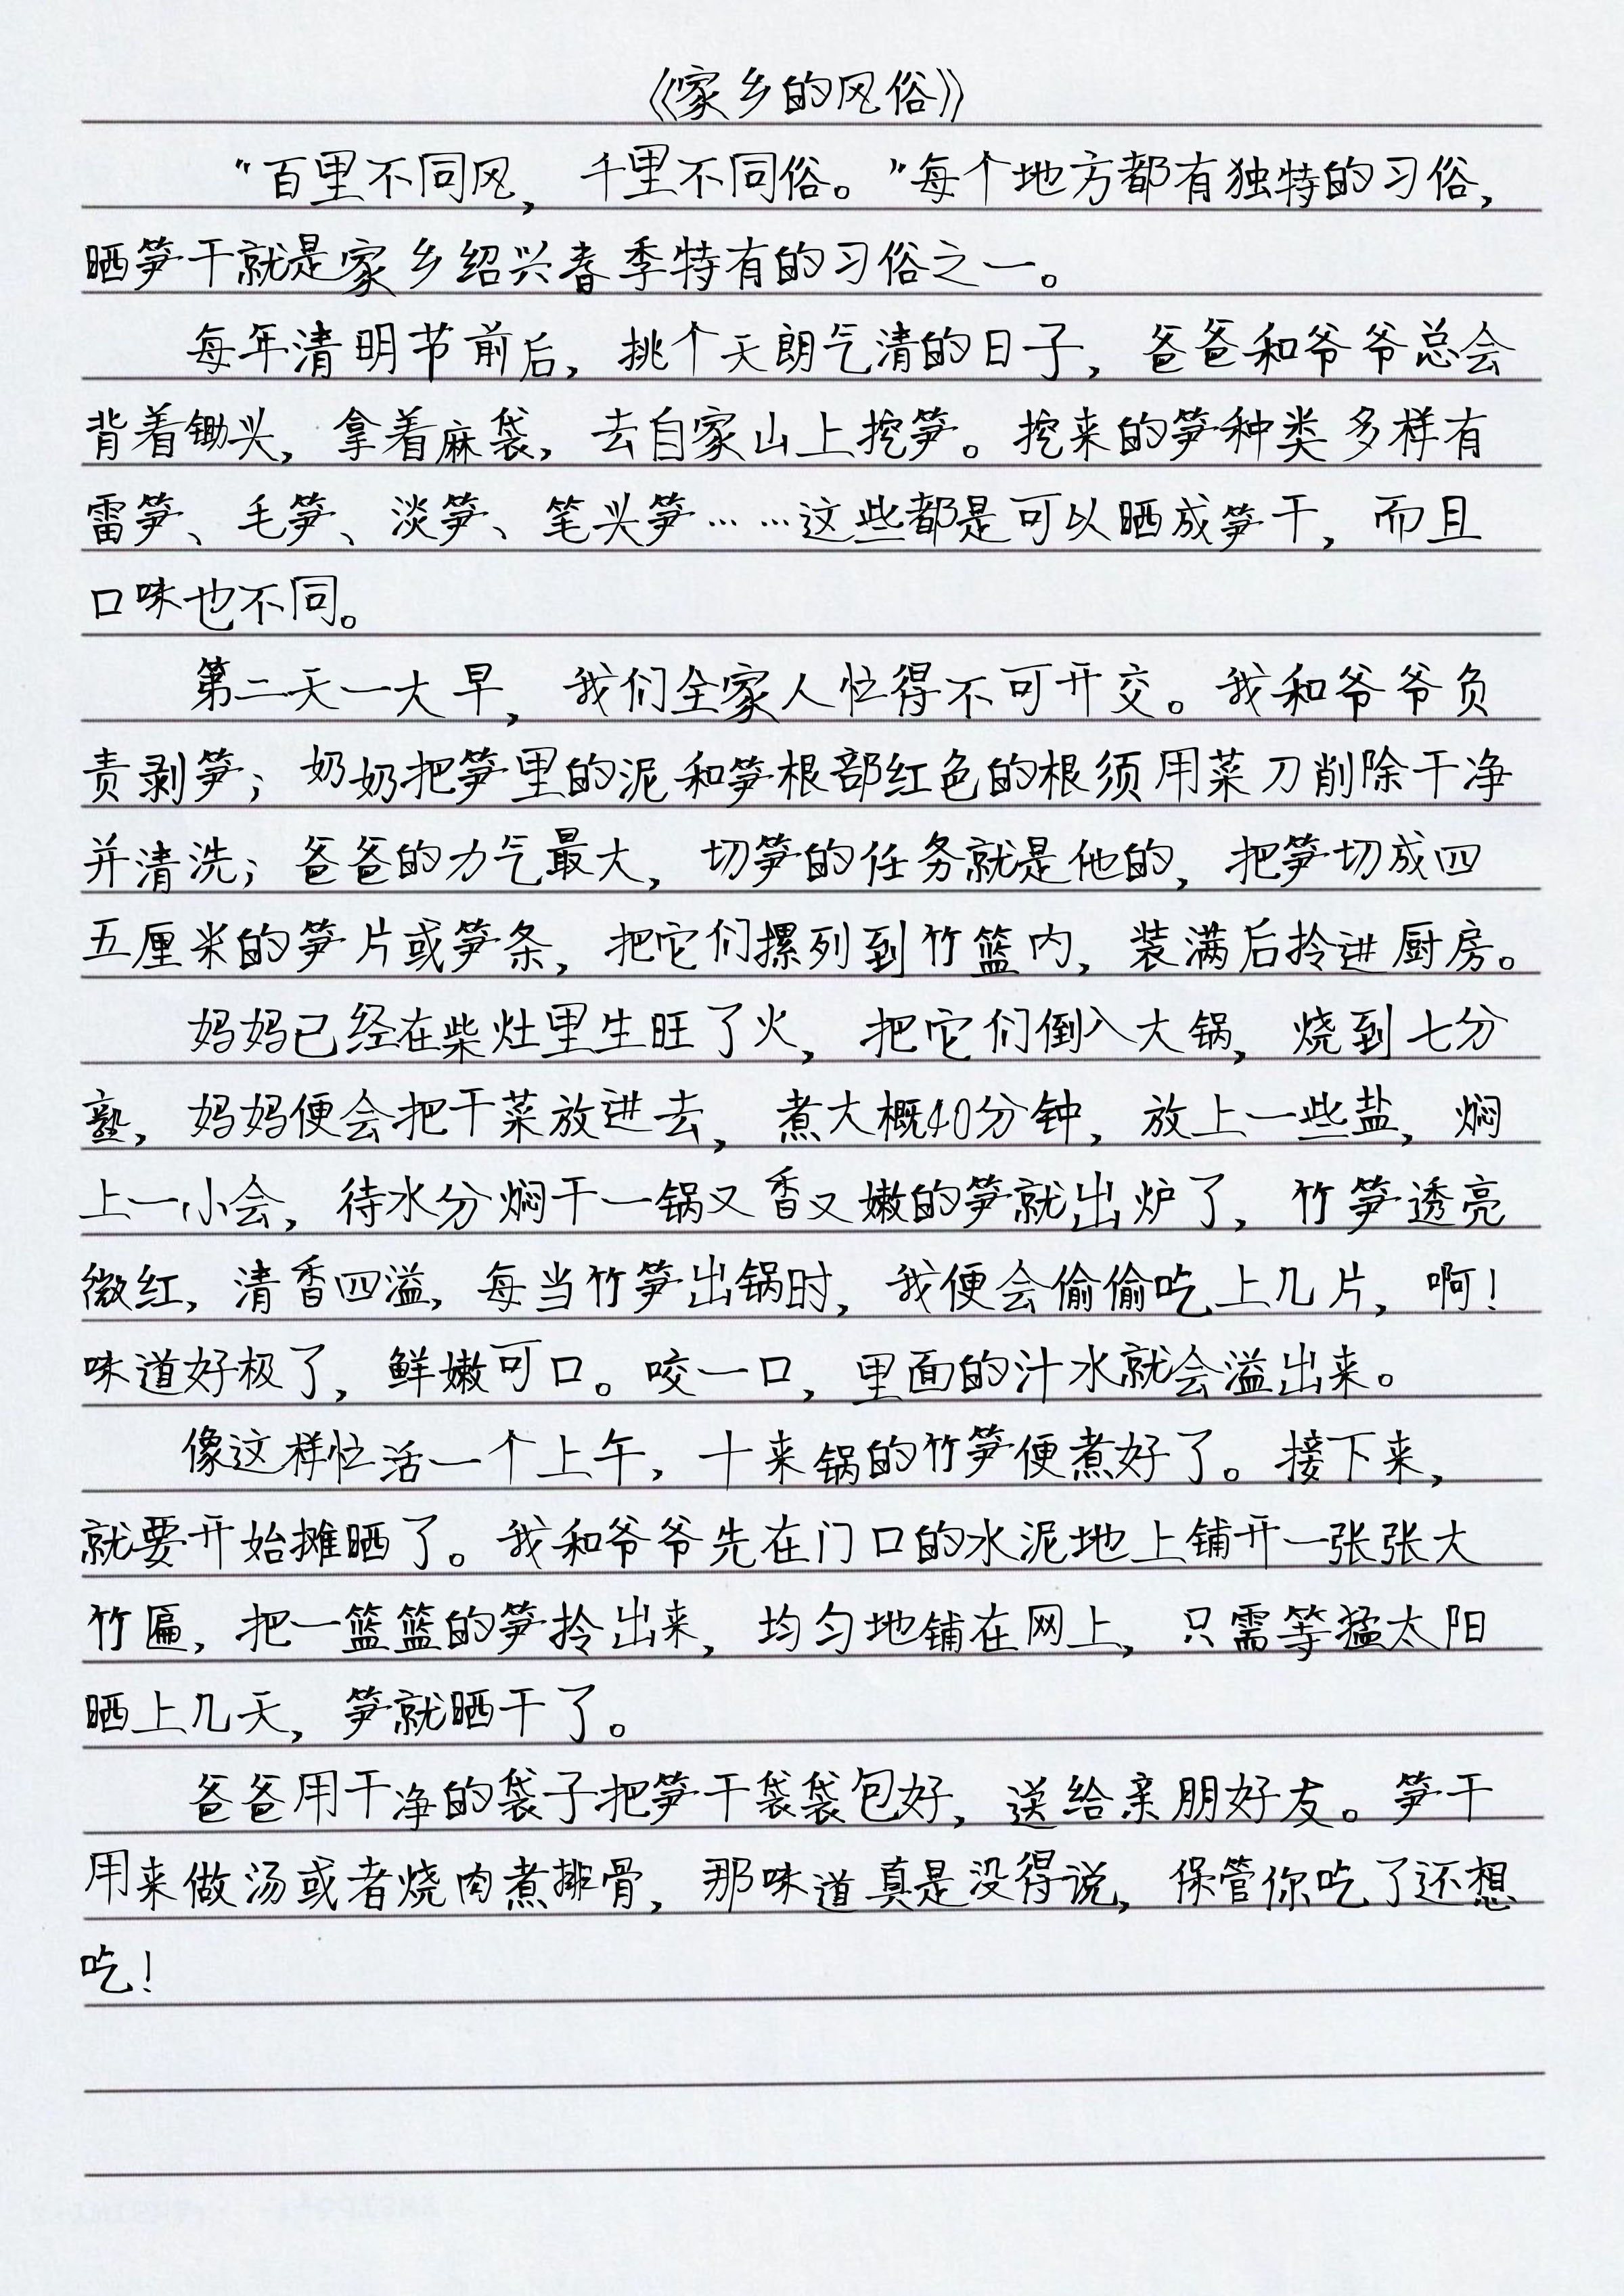 《家乡的风俗》
“百里不同风，千里不同俗。”每个地方都有独特的习俗，
晒笋干就是家乡绍兴春季特有的习俗之一。
每年清明节前后，挑个天朗气清的日子，爸爸和爷爷总会
背着锄头，拿着麻袋，去自家山上挖笋。挖来的笋种类多样有
雷笋、毛笋、淡笋、笔头笋……这些都是可以晒成笋干，而且
口味也不同。
第二天一大早，我们全家人忙得不可开交。我和爷爷负
责剥笋；奶奶把笋里的泥和笋根部红色的根须用菜刀削除干净
并清洗；爸爸的力气最大，切笋的任务就是他的，把笋切成四
五厘米的笋片或笋条，把它们摞列到竹篮内，装满后拎进厨房。
妈妈已经在柴灶里生旺了火，把它们倒入大锅，烧到七分
熟，妈妈便会把干菜放进去，煮大概40分钟，放上一些盐，焖
上一小会，待水分焖干一锅又香又嫩的笋就出炉了，竹笋透亮
微红，清香四溢，每当竹笋出锅时，我便会偷偷吃上几片，啊！
味道好极了，鲜嫩可口。咬一口，里面的汁水就会溢出来。
像这样忙活一个上午，十来锅的竹笋便煮好了。接下来，
就要开始摊晒了。我和爷爷先在门口的水泥地上铺开一张张大
竹匾，把一篮篮的笋拎出来，均匀地铺在网上，只需等猛太阳
晒上几天，笋就晒干了。
爸爸用干净的袋子把笋干袋袋包好，送给亲朋好友。笋干
用来做汤或者烧肉煮排骨，那味道真是没得说，保管你吃了还想
吃！